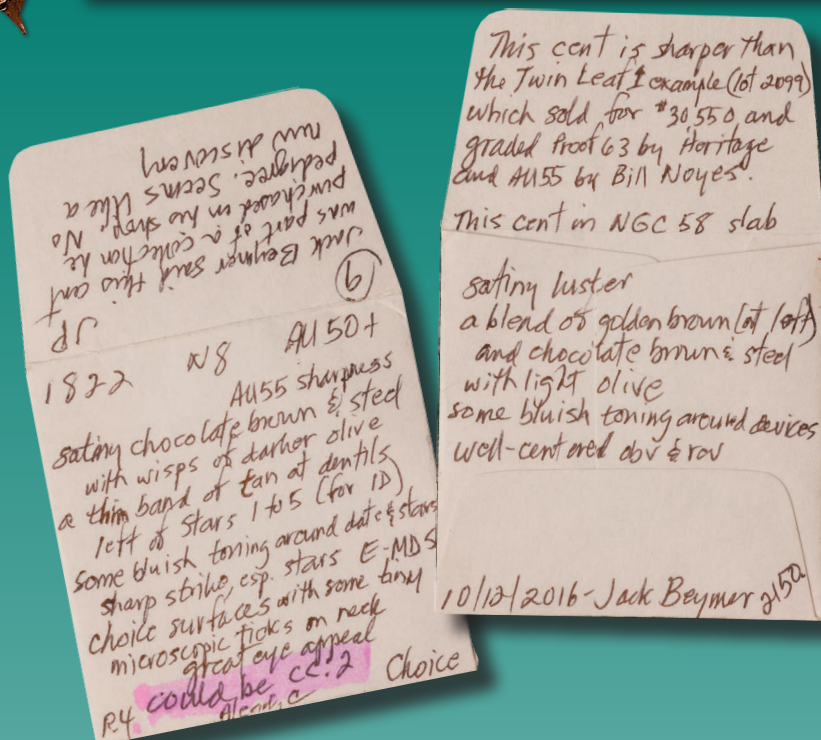 Jack Beymer said this cent
was part of a collection he
purchased in his shop. No
pedigree. Seems like a
new discovery
9
JP
1822 N8 AU50+
AU55 sharpness
satiny chocolate brown & steel
with wisps of darker olive
a thin band of tan at dentils
left of stars 1 to 5 (for ID)
some bluish toning around date & stars
sharp strike, esp. stars E-MDS
choice surfaces with some tiny
microscopic ticks on neck
great eye appeal
R4. could be CC.2 Choice
This cent is sharper than
the Twin Leaf 1 example (lot 2099)
which sold for $30,550 and
graded Proof 63 by Heritage
and AU55 by Bill Noyes.
This cent in NGC 58 slab
satiny luster
a blend of golden brown (at left)
and chocolate brown & steel
with light olive
some bluish toning around devices
well-centered obv & rev
10/12/2016 - Jack Beymer 2150